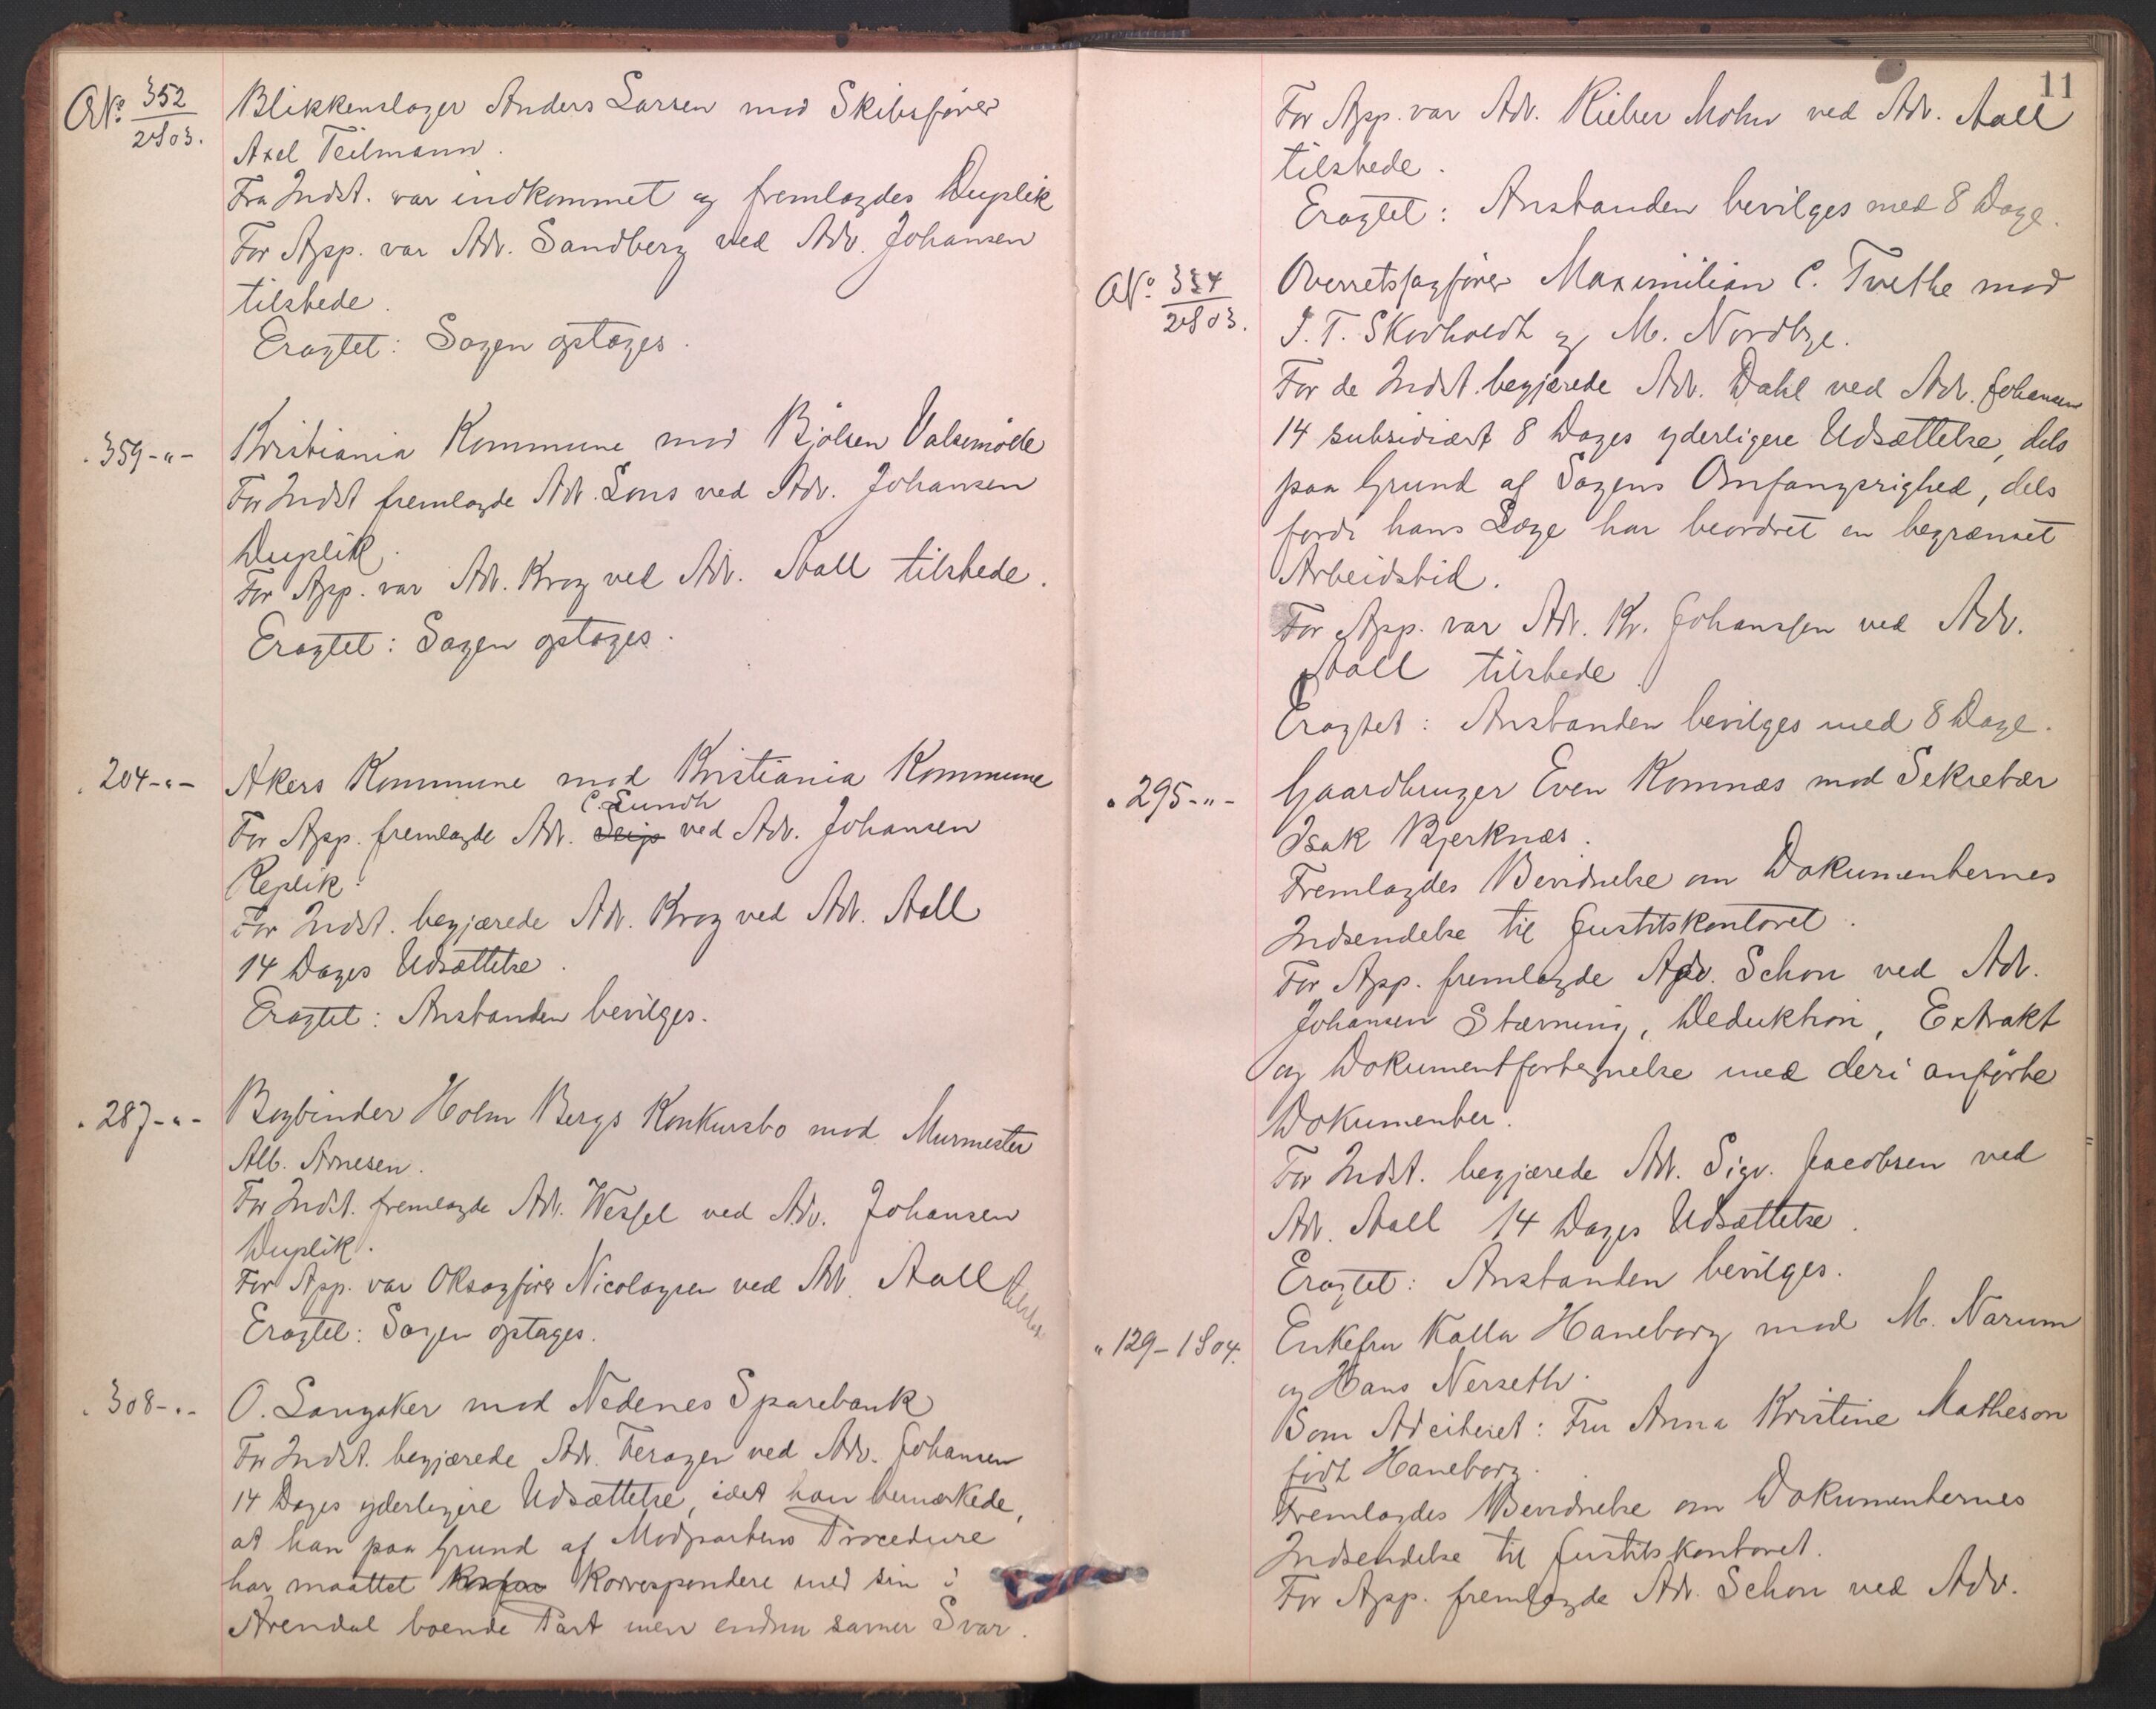 No. 352
2 1903.
Blikkenslager Anders Larsen mod Skibsfører
Axel Teilmann.
Fra Indst. var indkommet og fremlagdes Duplik
For App. var Adv. Sandberg ved Adv. Johansen
tilstede.
Eragtet: Sagen optages.
. 359-"-
Kristiania Kommune mod Bjølsen Valsemølle
For Indst fremlagde Adv. Lous ved Adv. Johansen
Duplik.
For App. var Adv. Krag ved Adv. Aall tilstede.
Eragtet: Sagen optages.
. 204-"-
Akers Kommune mod Kristiania Kommune
C. Lundh
For App. fremlagde Adv. ved Adv. Johansen
Replik.
For Indst. begjærede Adv. Krag ved Adv. Aall
14 Dages Udsættelse.
Eragtet: Anstanden bevilges.
. 287-"-
Bogbinder Holm Bergs Konkursbo mod Murmester
Alb. Arnesen.
For Indst. fremlagde Adv. Wessel ved Adv. Johansen
Duplik.
For App. var Oksagfører Nicolaysen ved Adv. Aall tilstede
Eragtet: Sagen optages.
. 308-"-
O. Langaker mod Nedenes Sparebank
For Indst. begjærede Adv. Feragen ved Adv. Johansen
14 Dages yderligere Udsættelse, idet han bemærkede,
at han paa Grund af Modpartens Procedure
har maattet korrespondere med sin i
Arendal boende Part men endnu savner Svar.
11
For App. var Adv. Rieber Mohn ved Adv. Aall
tilstede.
Eragtet: Anstanden bevilges med 8 Dage.
No. 354
2 1903.
Overretssagfører Maximilian C. Tvethe mod
J. T. Skovholdt og M. Nordbye.
For de Indst. begjærede Adv. Dahl ved Adv. Johansen
14 subsidiært 8 Dages yderligere Udsættelse, dels
paa Grund af Sagens Omfangsrighed, dels
fordi hans Læge har beordret en begrænset
Arbeidstid.
For App. var Adv. Kr. Johanssen ved Adv.
Aall tilstede.
Eragtet: Anstanden bevilges med 8 Dage.
. 295-"-
Gaardbruger Even Komnæs mod Sekretær
Isak Bjerknæs.
Fremlagdes Bevidnelse om Dokumenternes
Indsendelse til Justitskontoret.
For App. fremlagde Adv. Schon ved Adv.
Johansen Stævning, Deduktion, Extrakt
og Dokumentfortegnelse med deri anførte
Dokumenter.
For Indst. begjærede Adv. Sigv. Jacobsen ved
Adv. Aall 14 Dages Udsættelse.
Eragtet: Anstanden bevilges.
" 129-1904.
Enkefru Kalla Haneborg mod M. Narum
og Hans Nerseth.
Som Adciteret: Fru Anna Kristine Matheson
født Haneborg.
Fremlagdes Bevidnelse om Dokumenternes
Indsendelse til Justitskontoret.
For App. fremlagde Adv. Schon ved Adv.